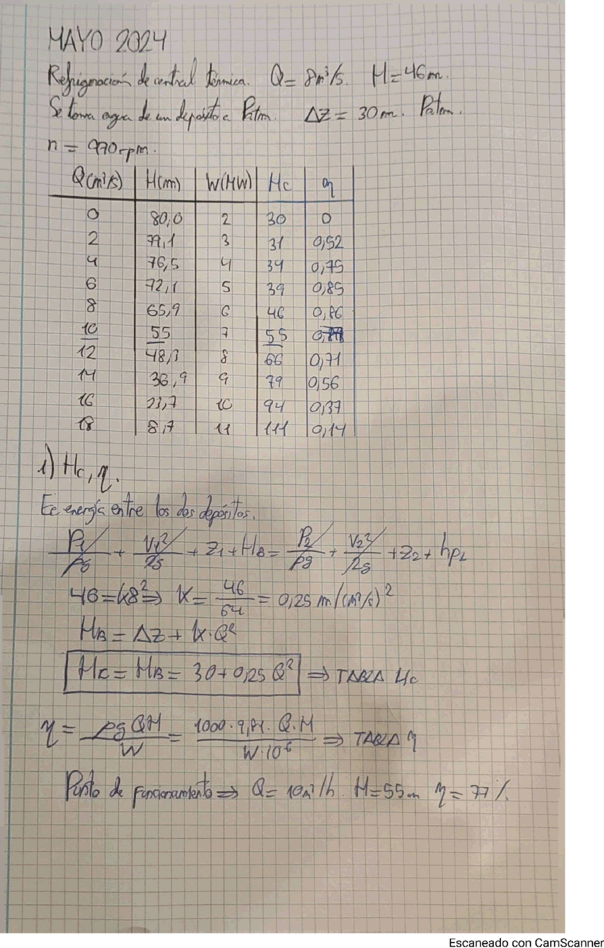 MAYO 2024
Refrigeración de central térmica. Q = 8m³/s. H = 46m.
Se toma agua de un depósito a Patm. ΔZ = 30m. Patm.
n = 970rpm.
Q(m³/s) H(m) W(MW) Hc η
0 80,0 2 30 0
2 79,1 3 31 0,52
4 76,5 4 34 0,75
6 72,1 5 39 0,85
8 65,9 6 46 0,86
10 55 7 55
12 48,3 8 66 0,71
14 36,9 9 79 0,56
16 23,7 10 94 0,37
18 8,7 11 111 0,14
1) Hc, η.
Ec energía entre los dos depósitos.
P1/ρg + V1²/2g + Z1 + HB = P2/ρg + V2²/2g + Z2 + hp2
46 = k8² ⇒ K = 46/64 = 0,25 m/(m³/s)²
HB = ΔZ + K·Q²
Hc = HB = 30 + 0,25 Q² ⇒ TABLA Hc
η = ρgQH/W = 1000·9,81·Q·H/W·10⁶ ⇒ TABLA η
Punto de funcionamiento ⇒ Q = 10m³/h H = 55m η = 77%.
Escaneado con CamScanner